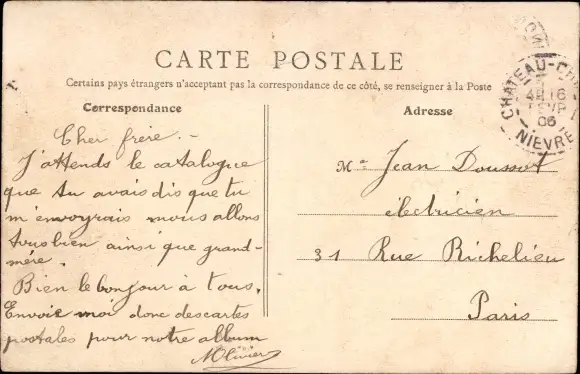 CARTE POSTALE
Certains pays étrangers n'acceptant pas la correspondance de ce côté, se renseigner à la Poste
Correspondance
Cher frère. -
J'attends le catalogue
que tu avais dis que tu
m'envoyrais nous allons
tous bien ainsi que grand-
mère.
Bien le bonjour à tous.
Envoie moi donc des cartes
postales pour notre album
MOlivier
Adresse
Mr Jean Doussot
électricien
31 Rue Richelieu
Paris
CHATEAU-CHI
4E 16
06
NIEVRE